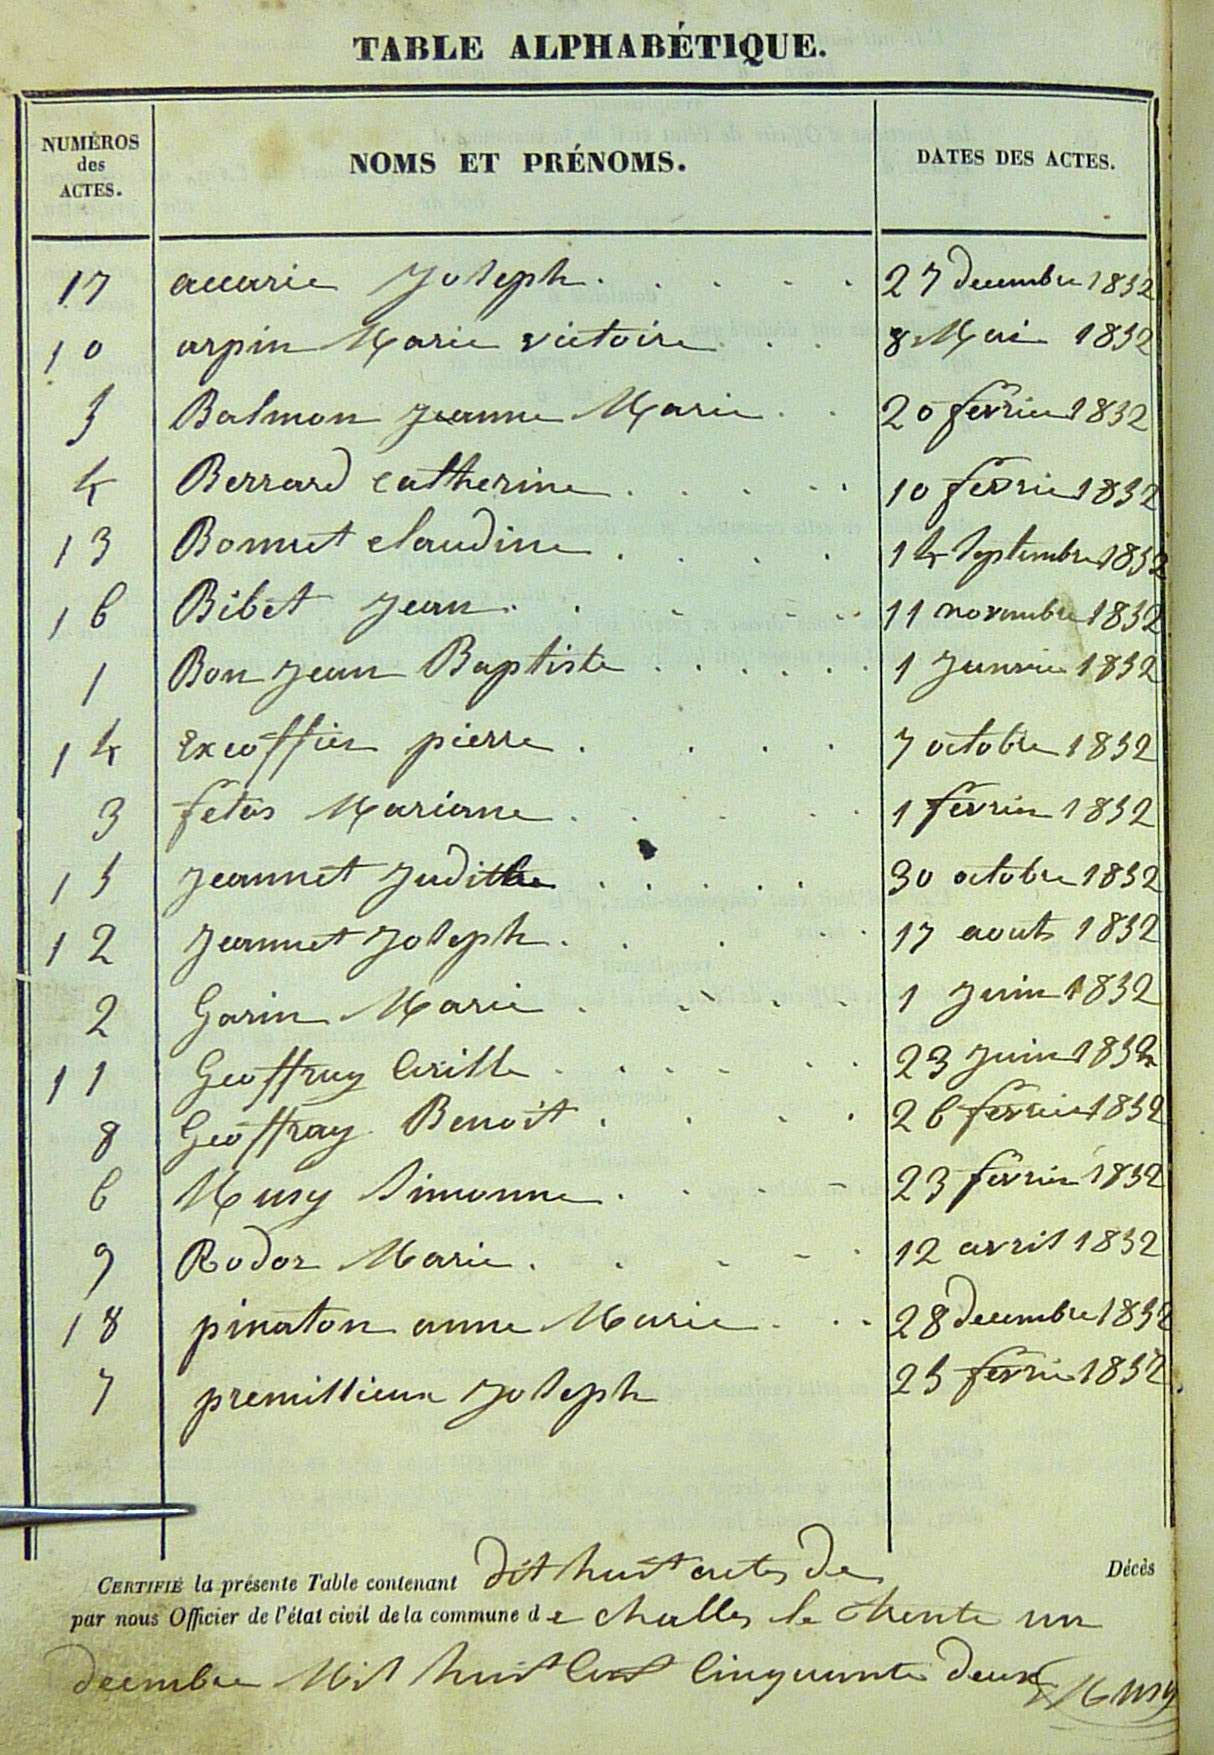 TABLE ALPHABÉTIQUE.
NUMÉROS des ACTES. NOMS ET PRÉNOMS. DATES DES ACTES.
17 accarie Joseph 27 decembre 1852
10 arpin Marie victoire 8 Mai 1852
5 Balmon jeanne Marie 20 fevrier 1852
4 Berrard catherine 10 fevrier 1852
13 Bonnet claudine 14 septembre 1852
16 Bibet jean 11 novembre 1852
1 Bon jean Baptiste 1 Janvier 1852
14 Excoffier pierre 7 octobre 1852
3 fetas Mariane 1 fevrier 1852
15 jeannet Judithe 30 octobre 1852
12 jeannet Joseph 17 aout 1852
2 Garin Marie 1 juin 1852
11 Geoffray Cirille 23 juin 1852
8 Geoffray Benoit 26 fevrier 1852
6 Musy Simonne 23 fevrier 1852
9 Rodoz Marie 12 avril 1852
18 pinaton anne Marie 28 decembre 1852
7 premillieux Joseph 25 fevrier 1852
CERTIFIÉ la présente Table contenant dit huit actes de Décès
par nous Officier de l'état civil de la commune de challes le trente un
decembre Mil huit Cent Cinquante deux Musy